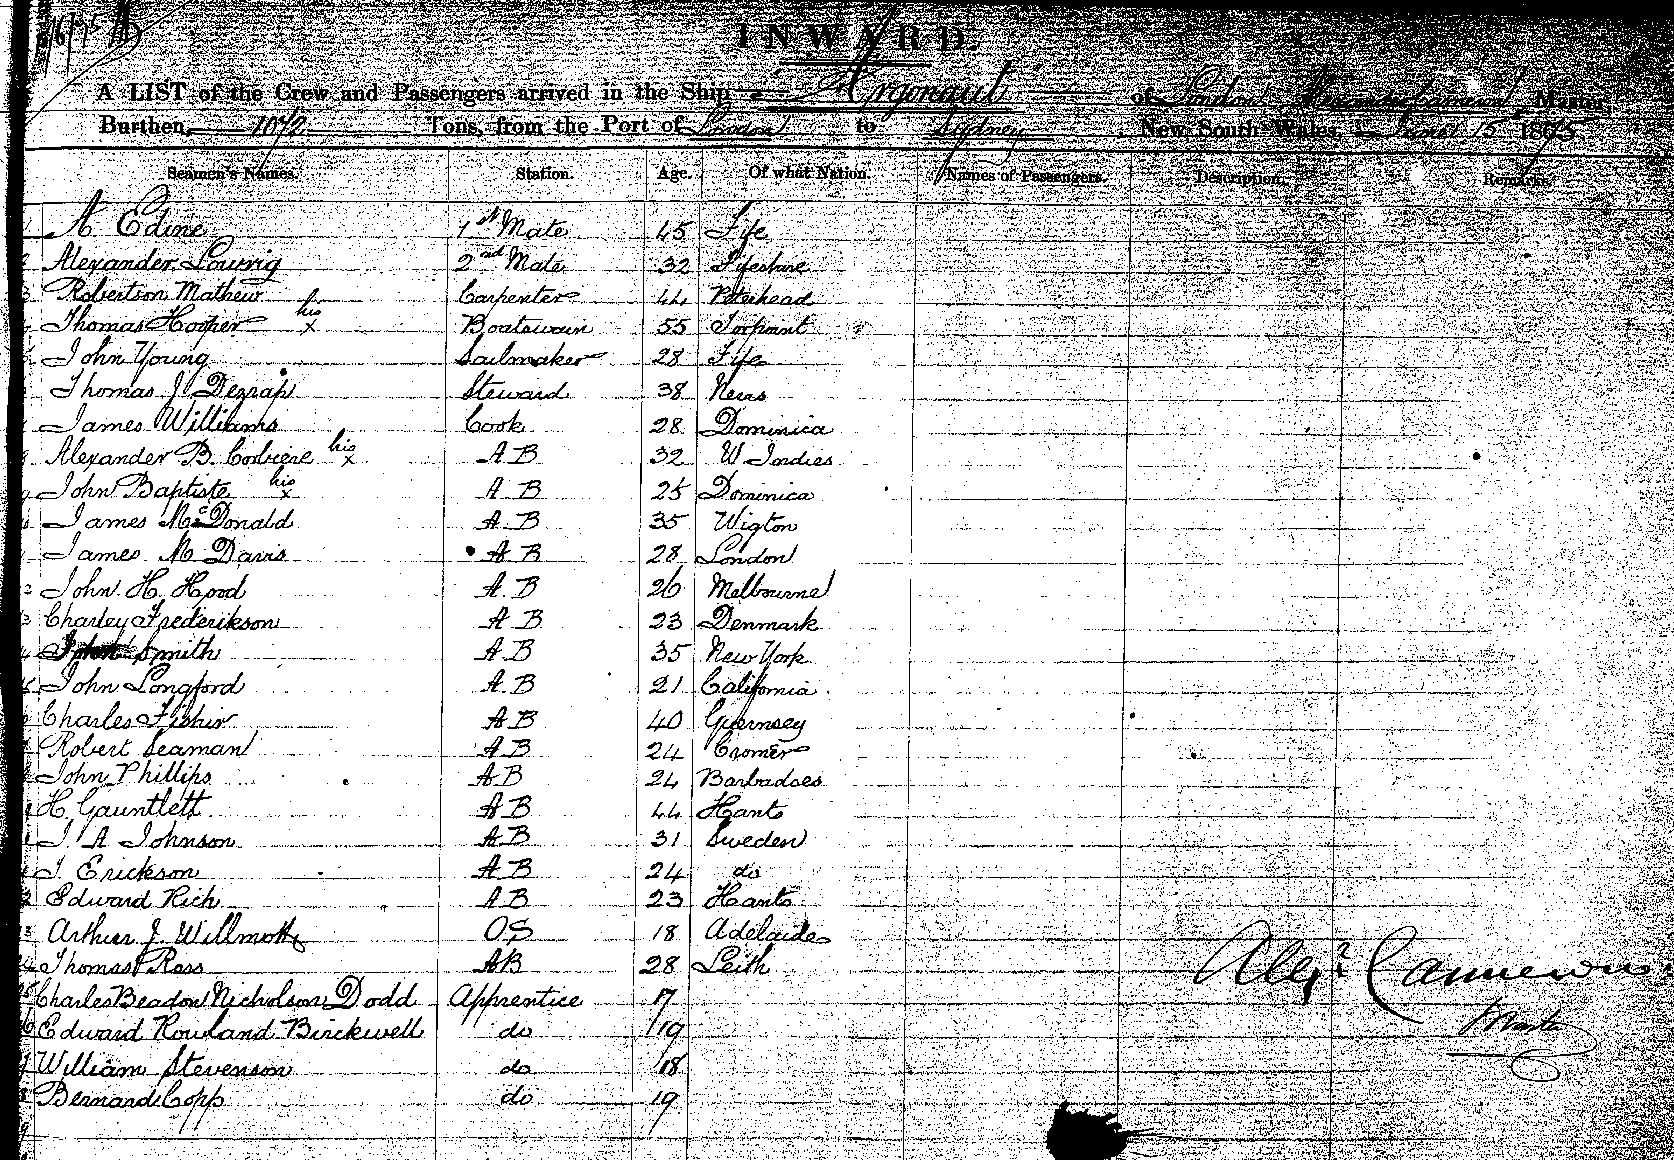 INWARD.
A LIST of the Crew and Passengers arrived in the Ship Argonaut of London Alexander Cameron, Master,
Burthen, 1072 Tons, from the Port of London to Sydney New South Wales, June 15 1875
Seamen's Names. Station. Age. Of what Nation. Names of Passengers. Description. Remarks
A. Edine 1st Mate 45 Fife
Alexander Lowrig 2nd Mate 32 Fifeshire
Robertson Mathew Carpenter 44 Peterhead
Thomas Hooper his x Boatswain 55 Torpoint
John Young Sailmaker 28 Fife
Thomas J. Dezrap Steward 38 Nevis
James Williams Cook 28 Dominica
Alexander B. Corbiere his x A B 32 W Indies
John Baptiste his x A B 25 Dominica
James McDonald A B 35 Wigton
James M Davis A B 28 London
John H. Hood A B 26 Melbourne
Charley Frederikson A B 23 Denmark
John Smith A B 35 New York
John Longford A B 21 California
Charles Fisher A B 40 Guernsey
Robert Seaman A B 24 Cromer
John Phillips A B 24 Barbadoes
H. Gauntlett A B 44 Hants
J. A Johnson A B 31 Sweden
J. Erickson A B 24 do
Edward Rich A B 23 Hants
Arthur J. Willmott OS 18 Adelaide
Thomas Ross A B 28 Leith
Charles Beadon Nicholson Dodd Apprentice 17
Edward Rowland Birckwell do 19
William Stevenson do 18
Bernard Copp do 19
Alexr Cameron
Master